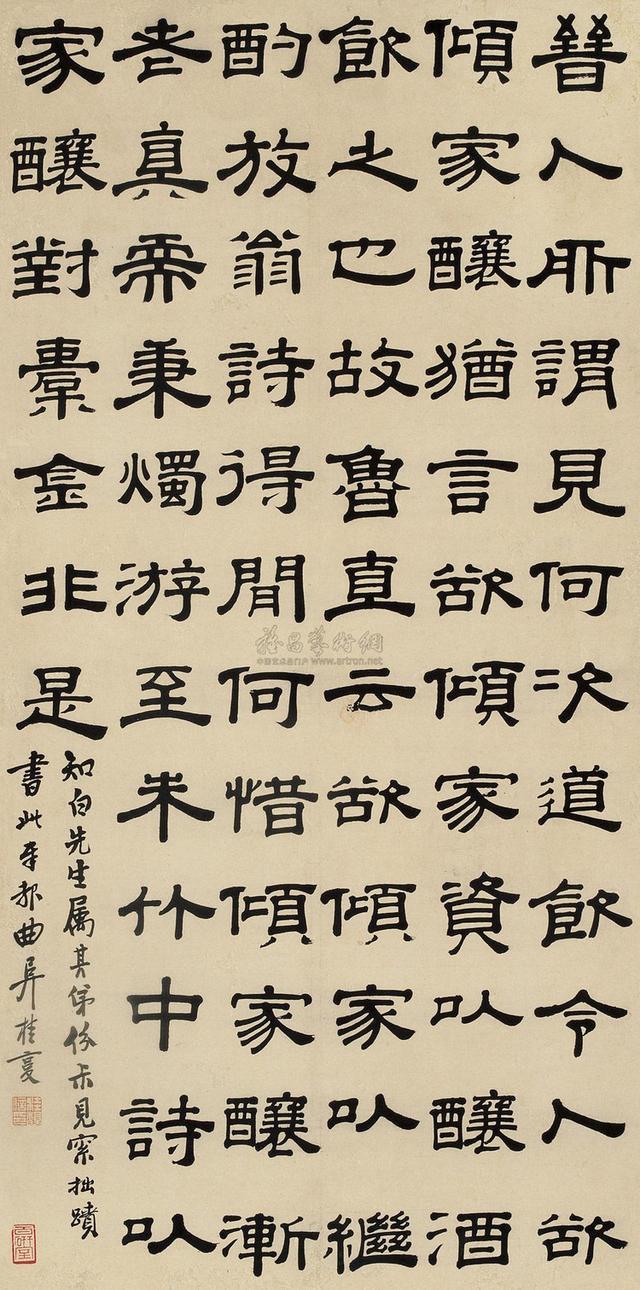 晉人所謂見何次道飲令人欲
傾家釀猶言欲傾家資以釀酒
飲之也故魯直云欲傾家以繼
酌放翁詩得閒何惜傾家釀漸
老真需秉燭游至朱竹中詩以
家釀對橐金非是
知白先生属其弟份示見索拙蹟
書此奉報曲阜桂馥
雅昌藝術網
中国艺术品门户 www.artron.net